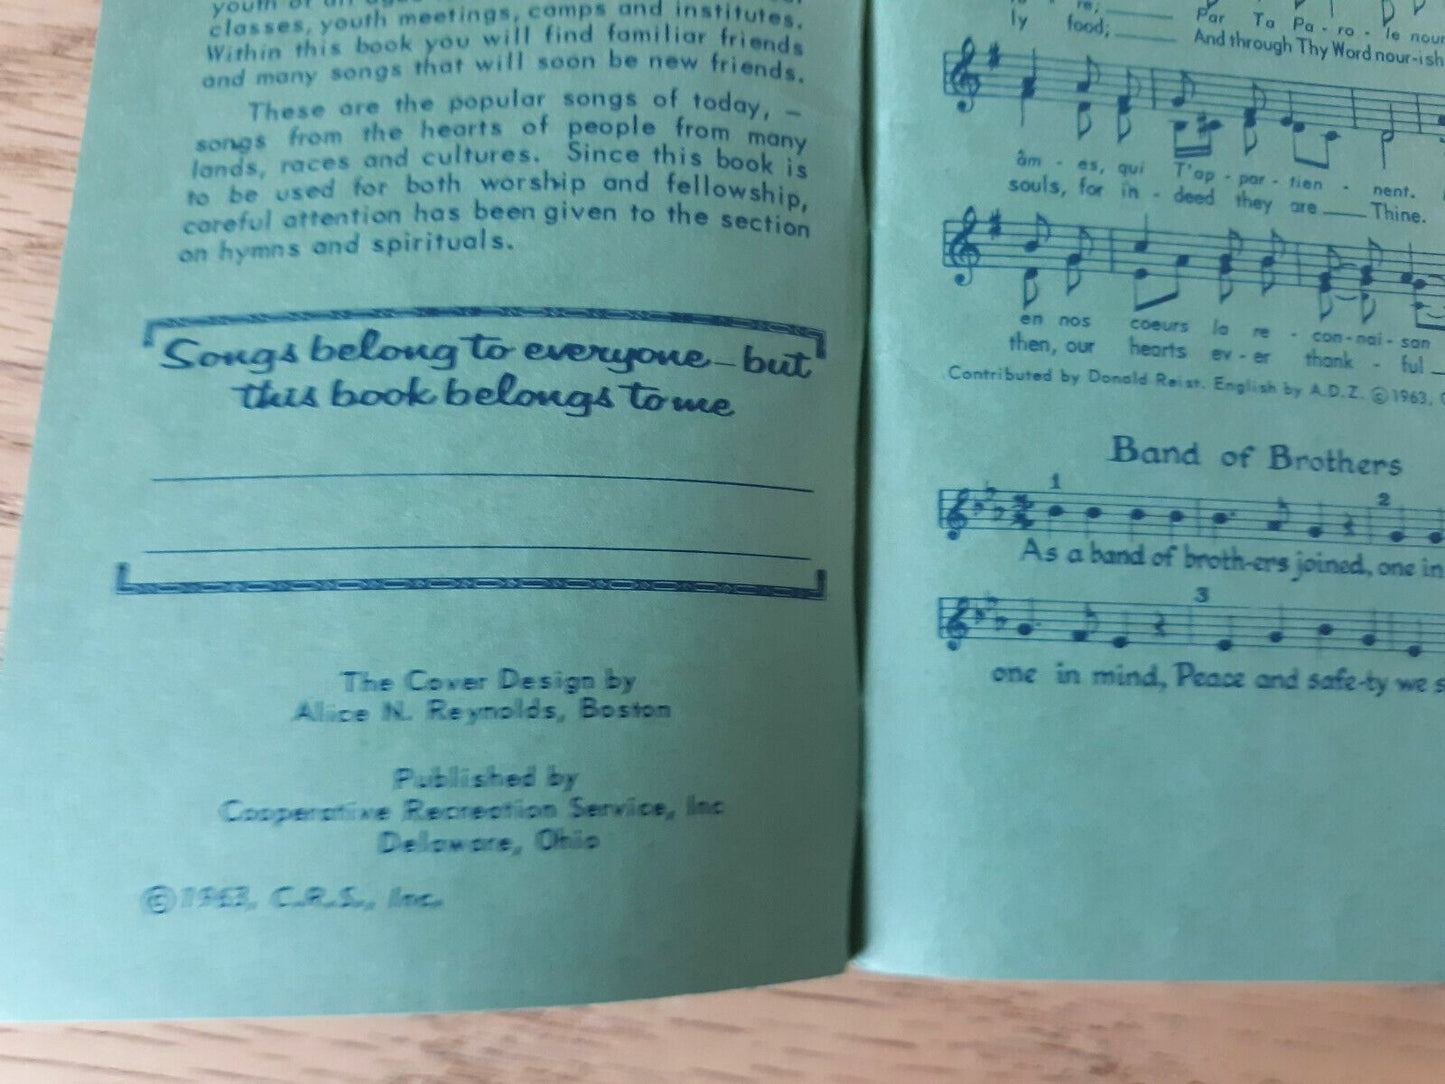 youth of all ages
classes, youth meetings, camps and institutes.
Within this book you will find familiar friends
and many songs that will soon be new friends.
These are the popular songs of today, —
songs from the hearts of people from many
lands, races and cultures. Since this book is
to be used for both worship and fellowship,
careful attention has been given to the section
on hymns and spirituals.
Songs belong to everyone—but
this book belongs to me
The Cover Design by
Alice N. Reynolds, Boston
Published by
Cooperative Recreation Service, Inc
Delaware, Ohio
©1963, C.R.S., Inc.
re; Par Ta Pa - ro - le nour
ly food; And through Thy Word nour-ish
âm - es, qui T'ap - par - tien - nent.
souls, for in - deed they are Thine.
en nos coeurs la re - con-nai-san
then, our hearts ev - er thank - ful
Contributed by Donald Reist. English by A.D.Z. ©1963,
Band of Brothers
1 2
As a band of broth-ers joined, one in
3
one in mind, Peace and safe-ty we s